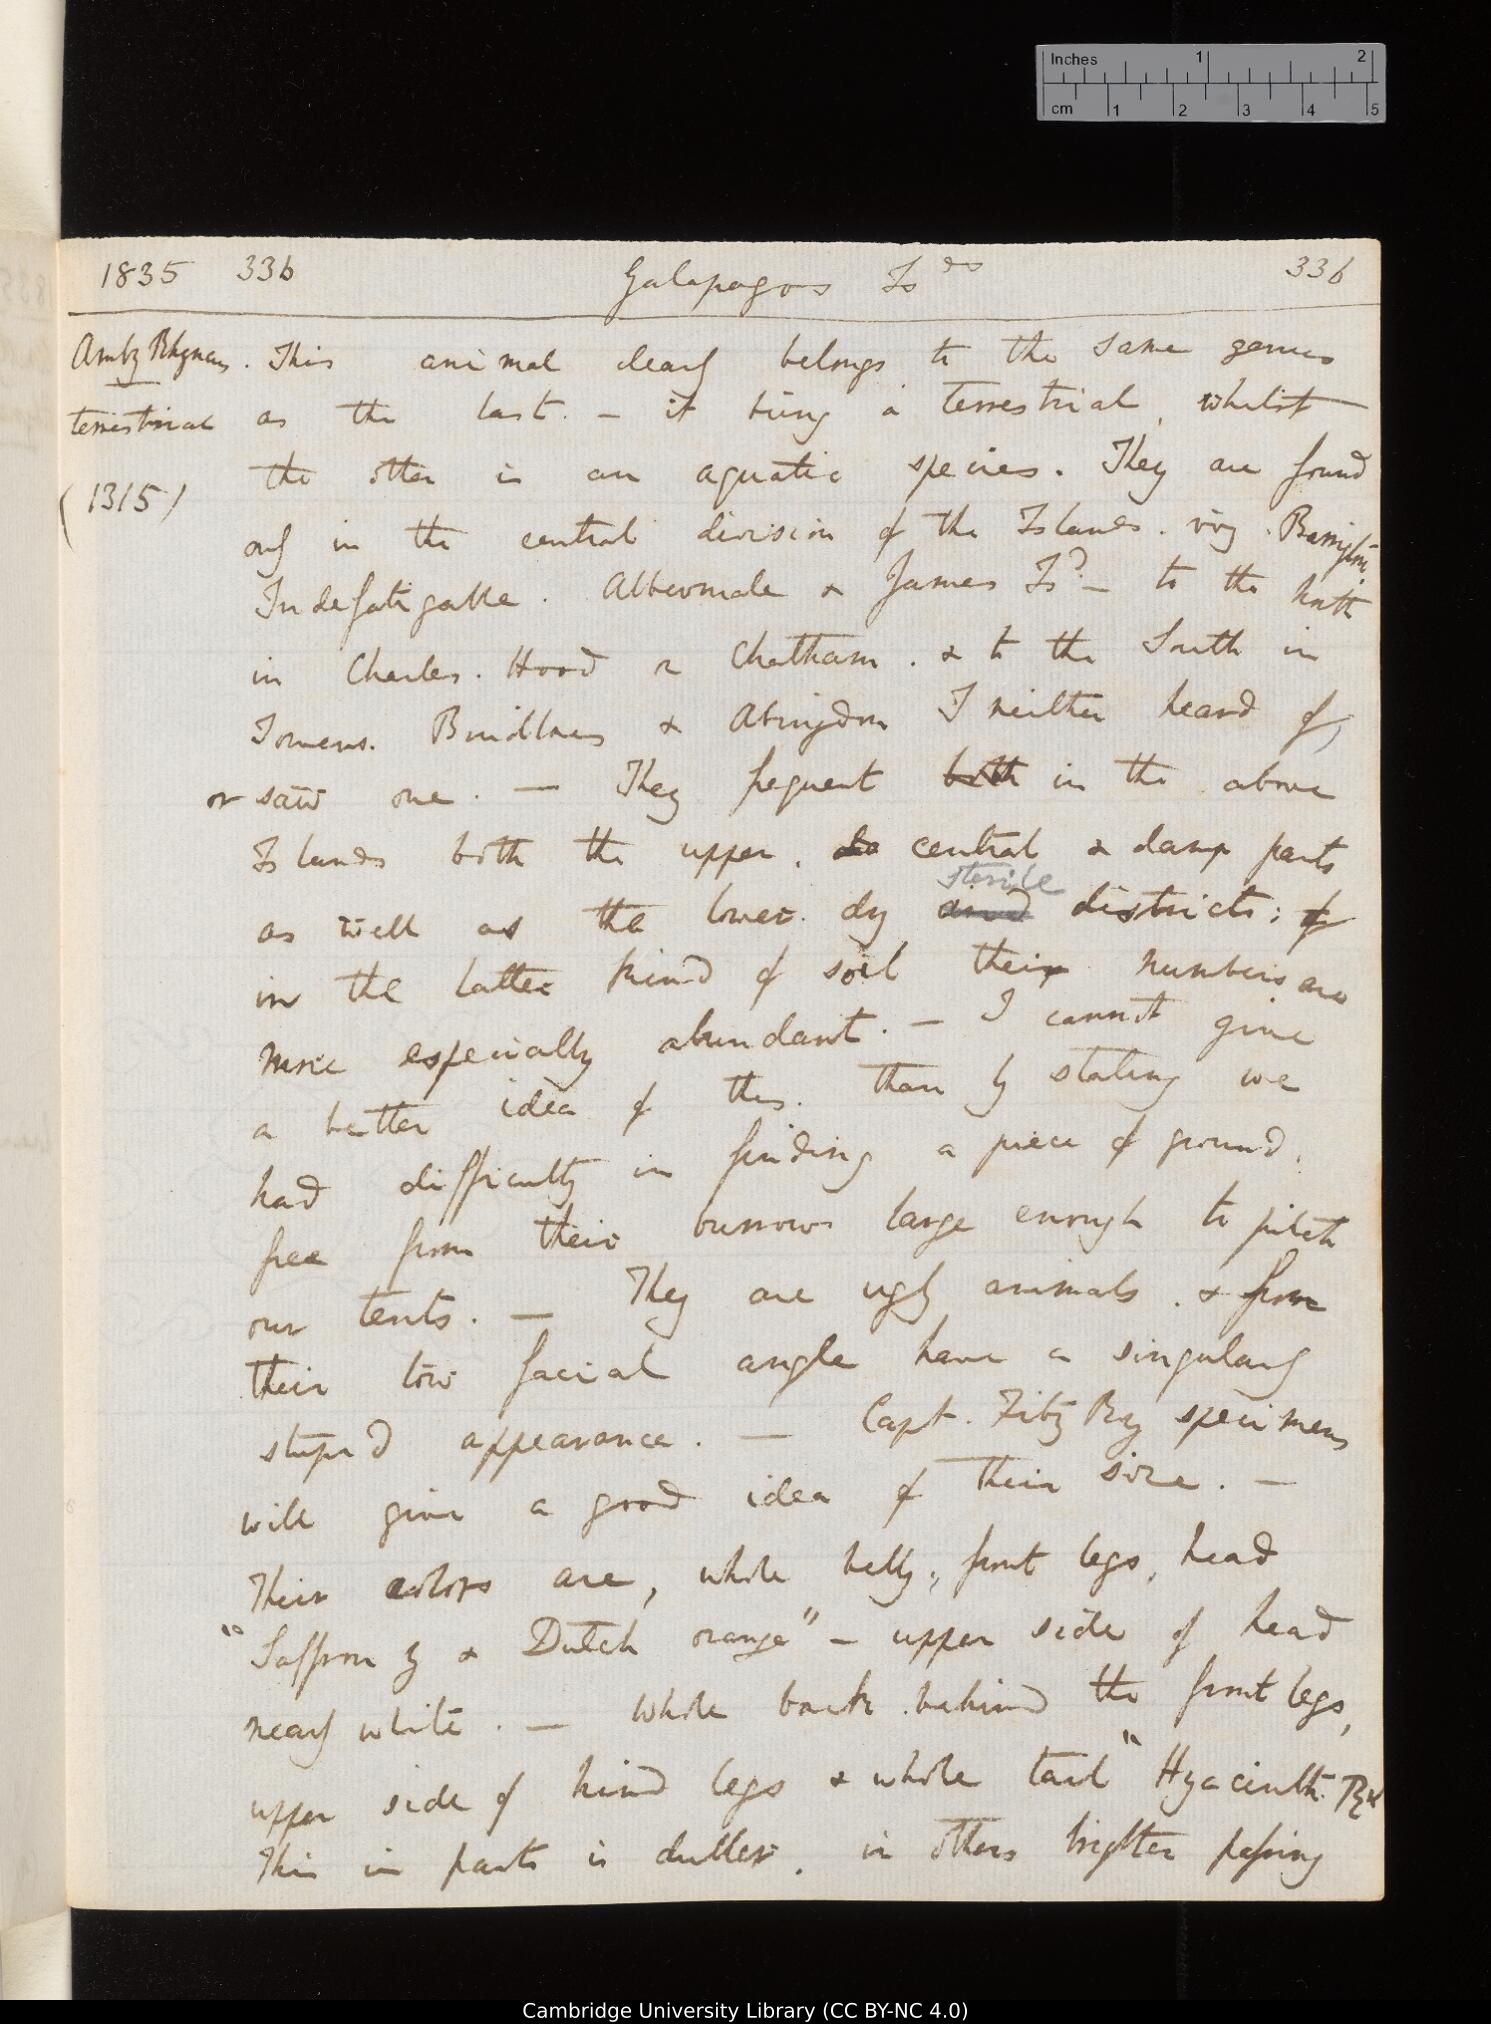 Inches 1 2
cm 1 2 3 4 5
1835 336 Galapagos Is^ds 336
Amby Rhyncus. This animal clearly belongs to the same genus
terrestrial as the last. — it being a terrestrial, whilst
(1315) the other is an aquatic species. They are found
only in the central division of the Islands. viz. Barrington
Indefatigable. Albermale & James Is^d. — to the north
in Charles. Hood & Chatham. & to the South in
Towers. Bindloes & Abingdon I neither heard of,
or saw one. — They frequent both in the above
Islands both the upper, central & damp parts
as well as the lower dry sterile districts: of
in the latter kind of soil their numbers are
more especially abundant. — I cannot give
a better idea of this. than by stating we
had difficulty in finding a piece of ground.
free from their burrows large enough to pitch
our tents. — They are ugly animals. & from
their low facial angle have a singularly
stupid appearance. — Capt. FitzRoy specimens
will give a good idea of their size. —
Their colors are, whole belly, front legs, head
"Saffron Y & Dutch orange" — upper side of head
nearly white. — Whole back behind the front legs,
upper side of hind legs & whole tail "Hyacinth. R"
This in parts is duller. in others brighter passing
Cambridge University Library (CC BY-NC 4.0)